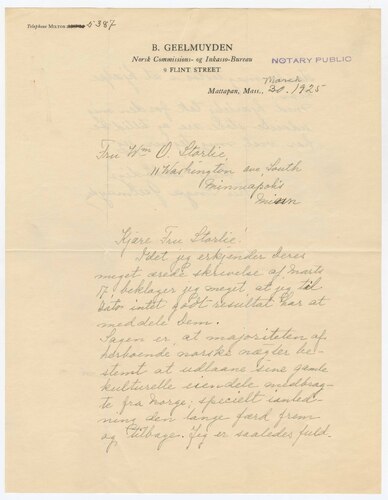 Telephone MILTON 5387
B. GEELMUYDEN
Norsk Commissions- og Inkasso-Bureau
9 FLINT STREET
NOTARY PUBLIC
Mattapan, Mass., March 30, 1925
Fru Wm O. Storlie,
11 Washington ave South
Minneapolis
Minn
Kjære Fru Storlie!
Idet jeg erkjender Deres
meget ærede skrivelse af Marts
7, beklager jeg meget, at jeg til
Dato intet godt resultat har at
meddele Dem.
Sagen er, at majoriteten af
herboende norske nægter be-
stemt at udlaane sine gamle
kulturelle eiendele medbrag-
te fra Norge; specielt
den lange færd frem
og tilbage. Jeg er saaledes fuld-